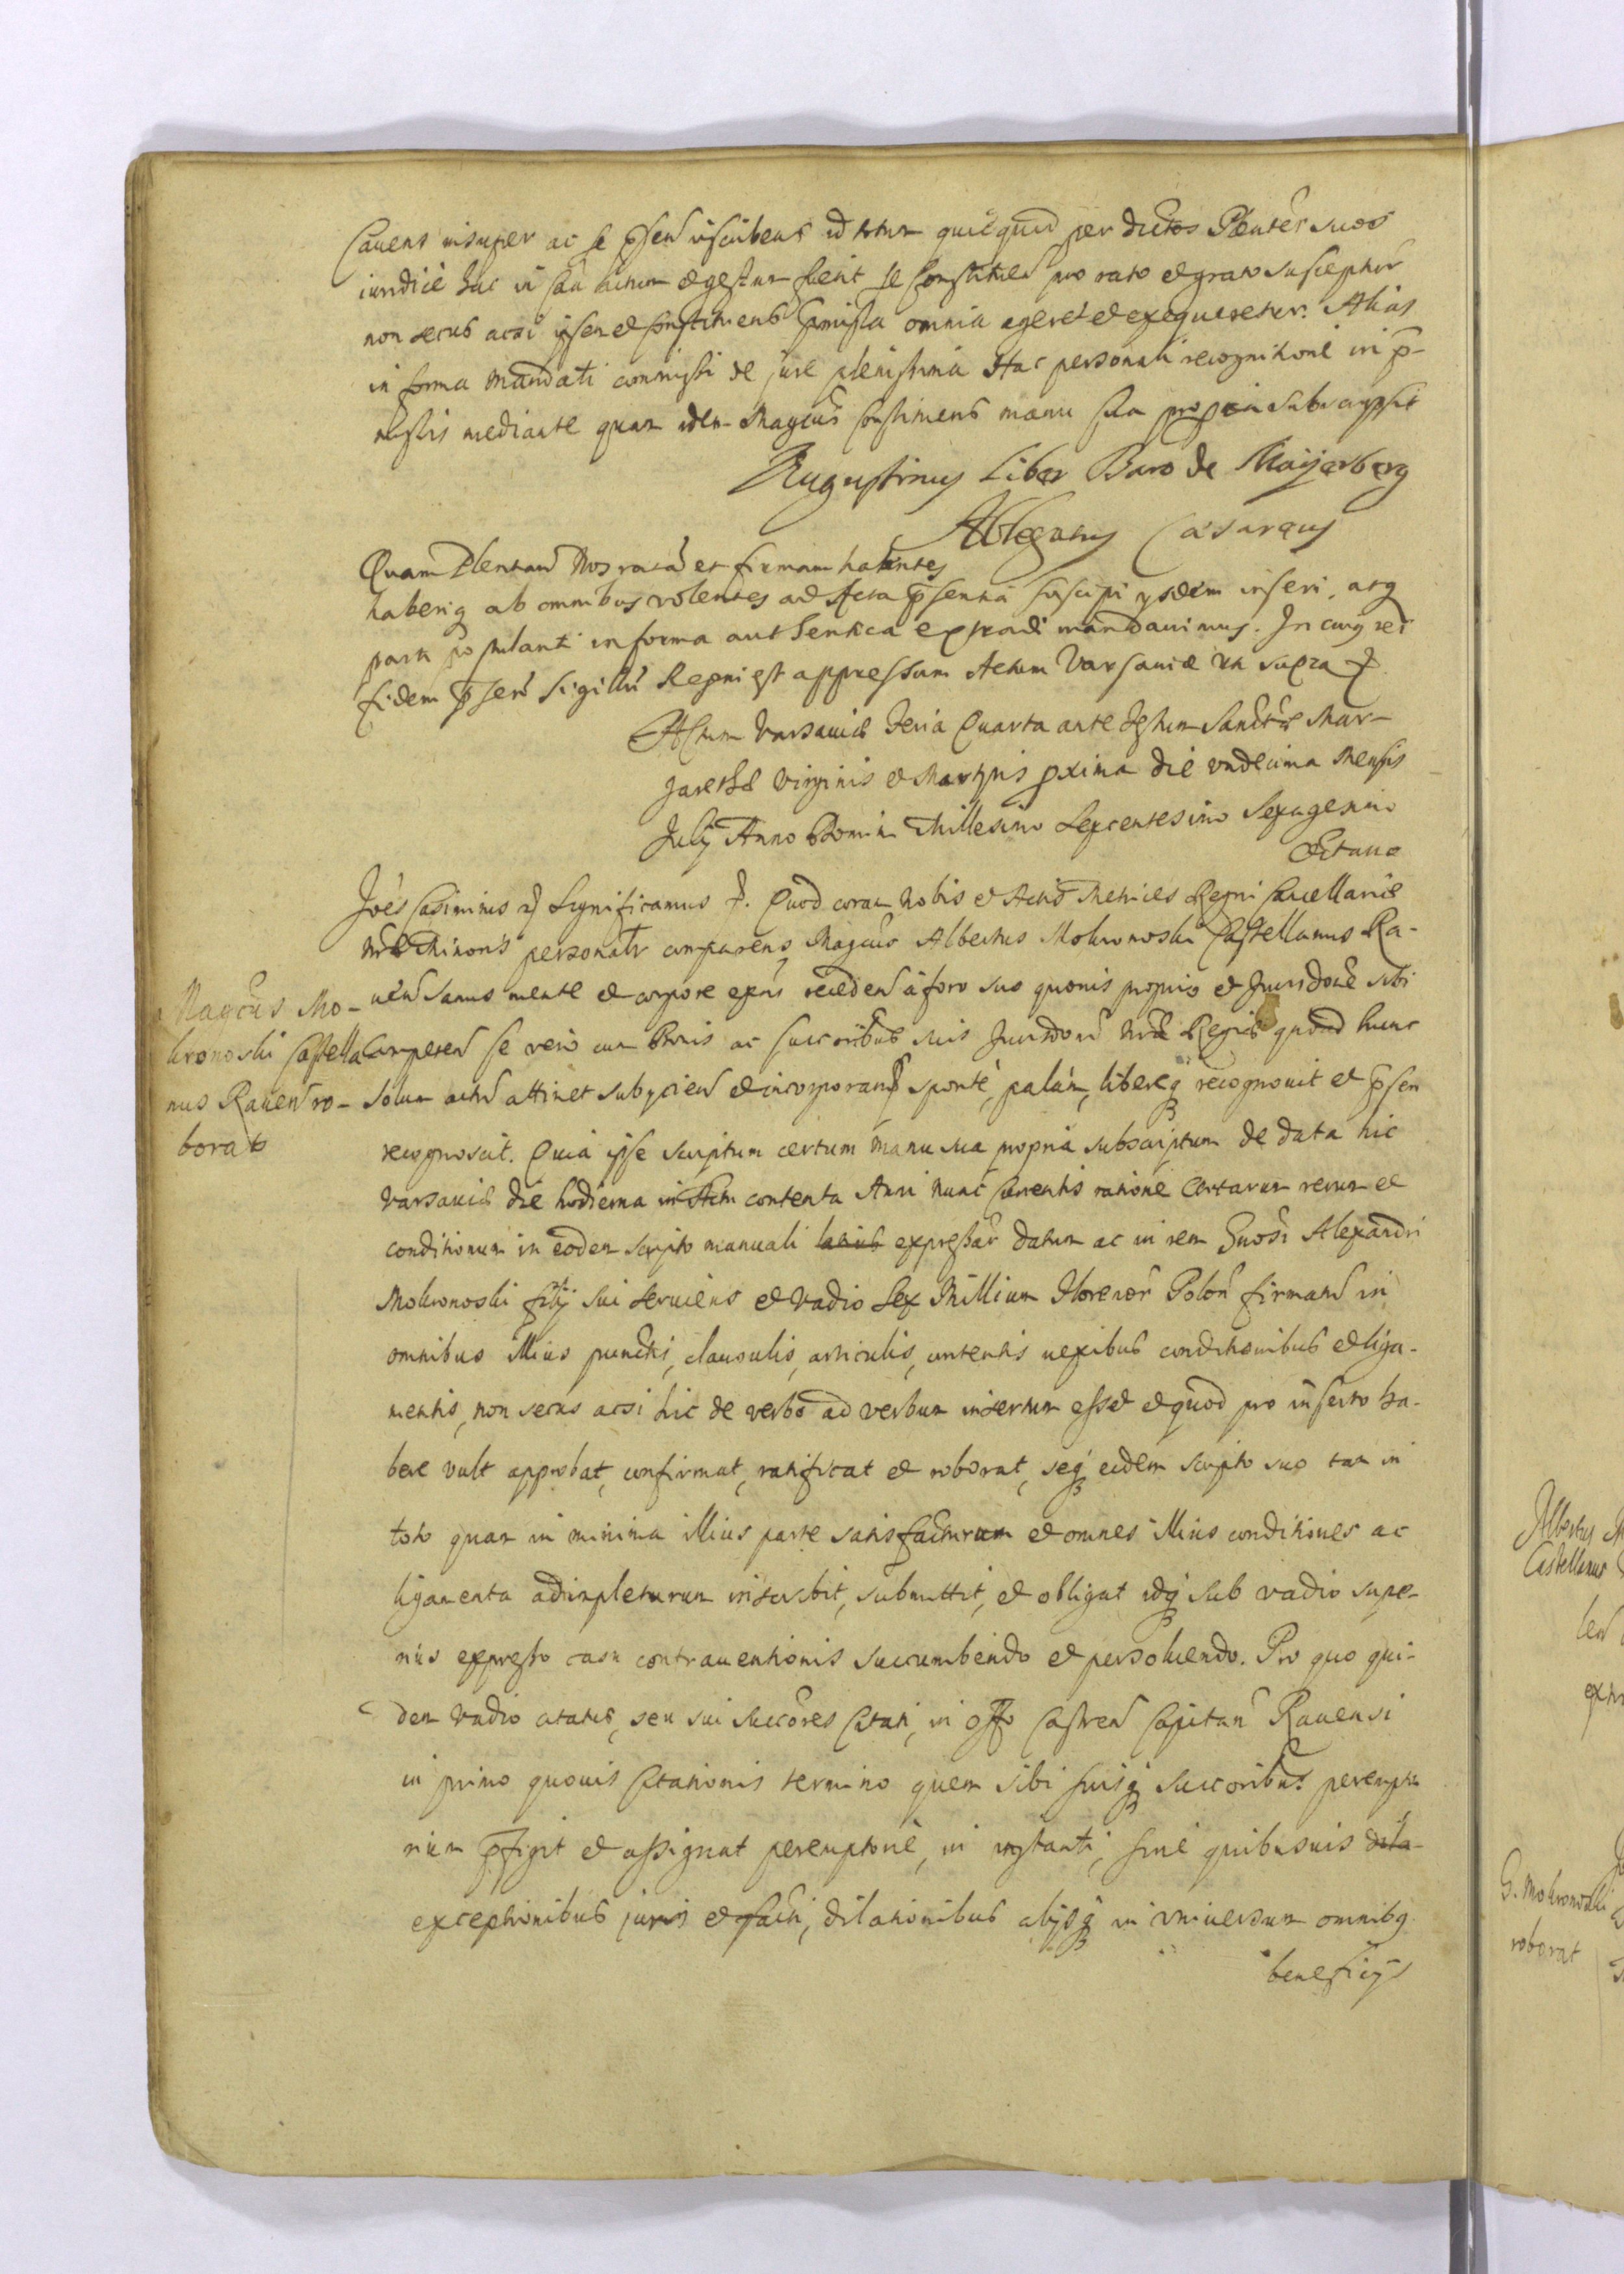 Cauens insuper ac se p̃sen̄ inscribens id totum quicquid per dictos Plentes̃ suos
iuridicè hac in cãa actum et gestum fuerit se constituen̄ pro rato et grato suscepturũ
non secus acsi ipsemet constituens p̃missa omnia ageret et exequeretur. Alias
in forma mandati commissi de jure plenissima Hac personali recognitione in p̃-
missis mediante quam idem Magcũs Constituens manu sua propria subscripsit
Augustinus Liber Baro de Maijerberg
Ablegatus Cæsareus
Quam Plentiam̃ Nos ratã et firmam habentes
haberiq̨ ab omnibus volentes ad Acta p̃sentia suscipi ysdem inseri, atq̨
parti postulanti in forma authentica extradi mandauimus. In cuius rei
fidem p̃sens̃ Sigillũ Regni est appressum Actum Varsauiæ ut supra
Actum Varsauiæ Feria Quarta ante Festum Sanctæ Mar-
garethæ Virginis et Martyris p̃xima die vndecima Mensis
Julij Anno Domini Millesimo Sexcentesimo Sexagesimo
Octauo
Joẽs Casimirus Significamus. Quod coram nobis et Actis Metrices Regni Cancellariæ
nr̃æ Minoris personalr̃ comparens, Magcũs Albertus Mokronoski Castellanus Ra-
uen̄ sanus mente et corpore exn̄s recedẽn à foro suo quouis proprio et Jurisdonẽ sibi
Competen̄ se vero cum Bonis ac succoribus̃ suis Jurisdonĩ nr̃æ Regiæ quoad hunc
solum actũ attinet subyciẽn et incorporan̄s sponte, palàm, libereq̨ recognouit et p̃sen
recognoscit. Quia ipse scriptum certum manu sua propria subscriptum de data hic
Varsauiæ die hodierna in Actu contenta Anni nunc Currentis ratione Certarum rerum et
conditionum in eodem scripto manuali latius expressar̃ datum ac in rem Gnosĩ Alexandri
Mokronoski filij sui seruiens et vadio Sex Millium Florenor̃ Polon̄ firmatũ in
omnibus illius punctis, clausulis, articulis, contentis nexibus conditionibus et liga-
mentis, non secus acsi hic de verbo ad verbum insertum esset et quod pro inserto ha-
bere vult approbat, confirmat, ratificat et roborat, seq̨ eidem scripto suo tam in
toto quam in minima illius parte satisfacturum et omnes illius conditiones ac
ligamenta adimpleturum inscribit, submittit, et obligat idq̨ sub vadio supe-
rius expresso casu contrauentionis succumbendo et persoluendo. Pro quo qui-
dem vadio citatus, seu sui succores̃ citati, in offo Castren̄ Capitan̄ Rauensi
in primo quouis Citationis termino quem sibi suisq̨ succoribus̃ perempto
rium p̃figit et assignat peremptoriè, in instanti, sine quibusuis dila-
exceptionibus juris et facti, dilationibus alysq̨ in vniuersum omnibq̨
beneficys
Magcũs Mo-
kronoski Castella
nus Rauen̄ ro-
borat
Albertus M
Castellanus
len̄
extr
G. Mokronoski
roborat